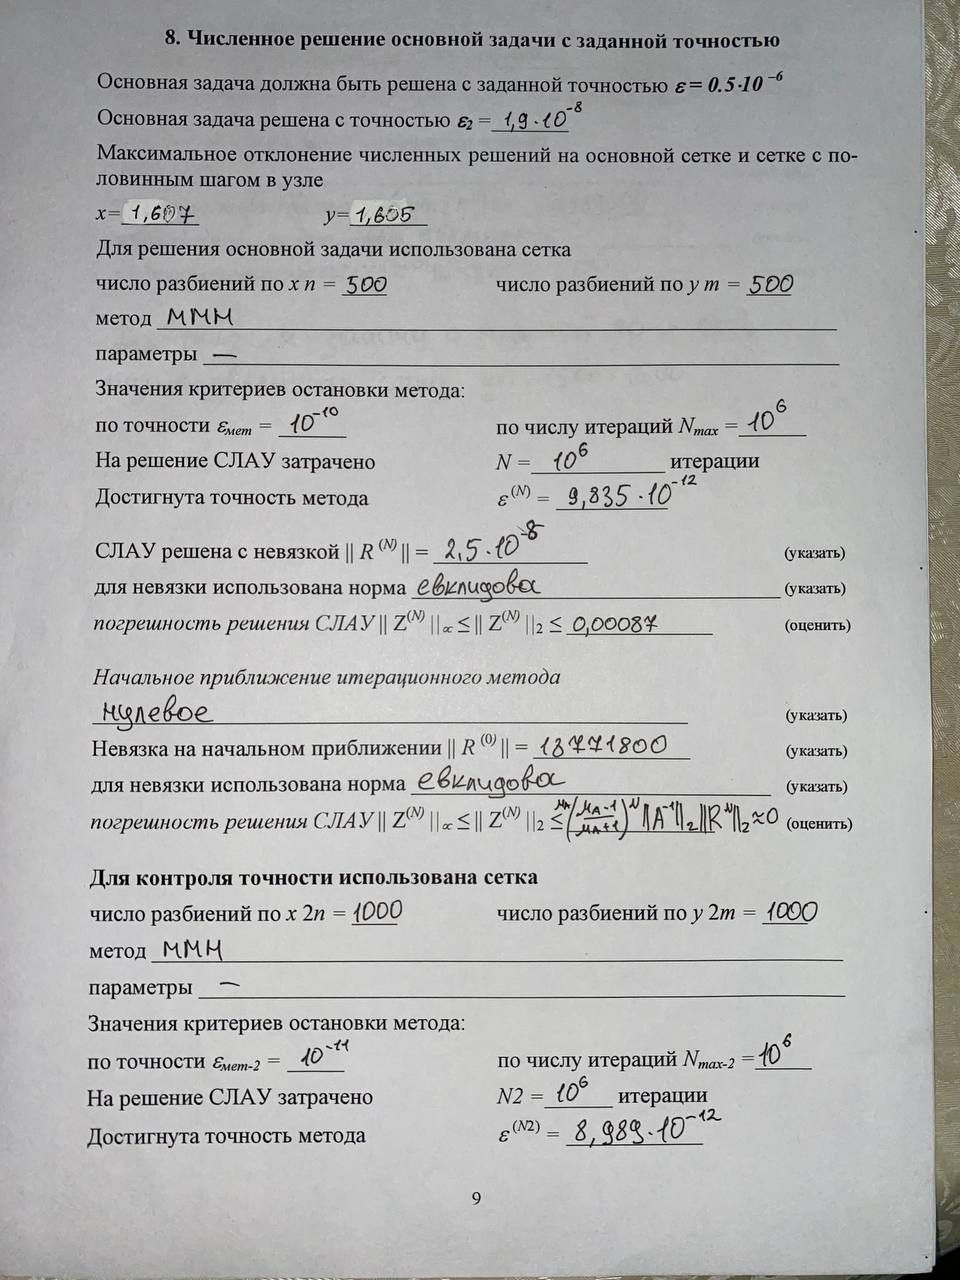 8. Численное решение основной задачи с заданной точностью
Основная задача должна быть решена с заданной точностью ε = 0.5·10⁻⁶
Основная задача решена с точностью ε₂ = 1,9·10⁻⁸
Максимальное отклонение численных решений на основной сетке и сетке с по-
ловинным шагом в узле
x= 1,607 y= 1,605
Для решения основной задачи использована сетка
число разбиений по x n = 500 число разбиений по y m = 500
метод ММН
параметры —
Значения критериев остановки метода:
по точности εмет = 10⁻¹⁰ по числу итераций Nmax = 10⁶
На решение СЛАУ затрачено N = 10⁶ итерации
Достигнута точность метода ε⁽ᴺ⁾ = 9,835·10⁻¹²
СЛАУ решена с невязкой || R⁽ᴺ⁾ || = 2,5·10⁻⁸ (указать)
для невязки использована норма евклидова (указать)
погрешность решения СЛАУ || Z⁽ᴺ⁾ ||∞ ≤ || Z⁽ᴺ⁾ ||₂ ≤ 0,00087 (оценить)
Начальное приближение итерационного метода
нулевое (указать)
Невязка на начальном приближении || R⁽⁰⁾ || = 18771800 (указать)
для невязки использована норма евклидова (указать)
погрешность решения СЛАУ || Z⁽ᴺ⁾ ||∞ ≤ || Z⁽ᴺ⁾ ||₂ ≤ μA((μA-1)/(μA+1))ᴺ ||A⁻¹||₂||Rᴺ||₂≈0 (оценить)
Для контроля точности использована сетка
число разбиений по x 2n = 1000 число разбиений по y 2m = 1000
метод ММН
параметры —
Значения критериев остановки метода:
по точности εмет-2 = 10⁻¹¹ по числу итераций Nmax-2 = 10⁶
На решение СЛАУ затрачено N2 = 10⁶ итерации
Достигнута точность метода ε⁽ᴺ²⁾ = 8,989·10⁻¹²
9